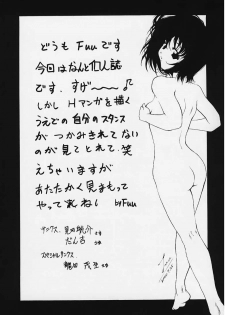 どうも Fuu です
今回はなんと個人誌
です. すげ〜〜♪
しかし Hマンガを描く
うえでの自分のスタンス
がつかみきれてない
のが見てとれて、笑
えちゃいますが
あたたかく見まもって
やって下さいね! by Fuu
サンクス
だん吉
スペシャルサンクス